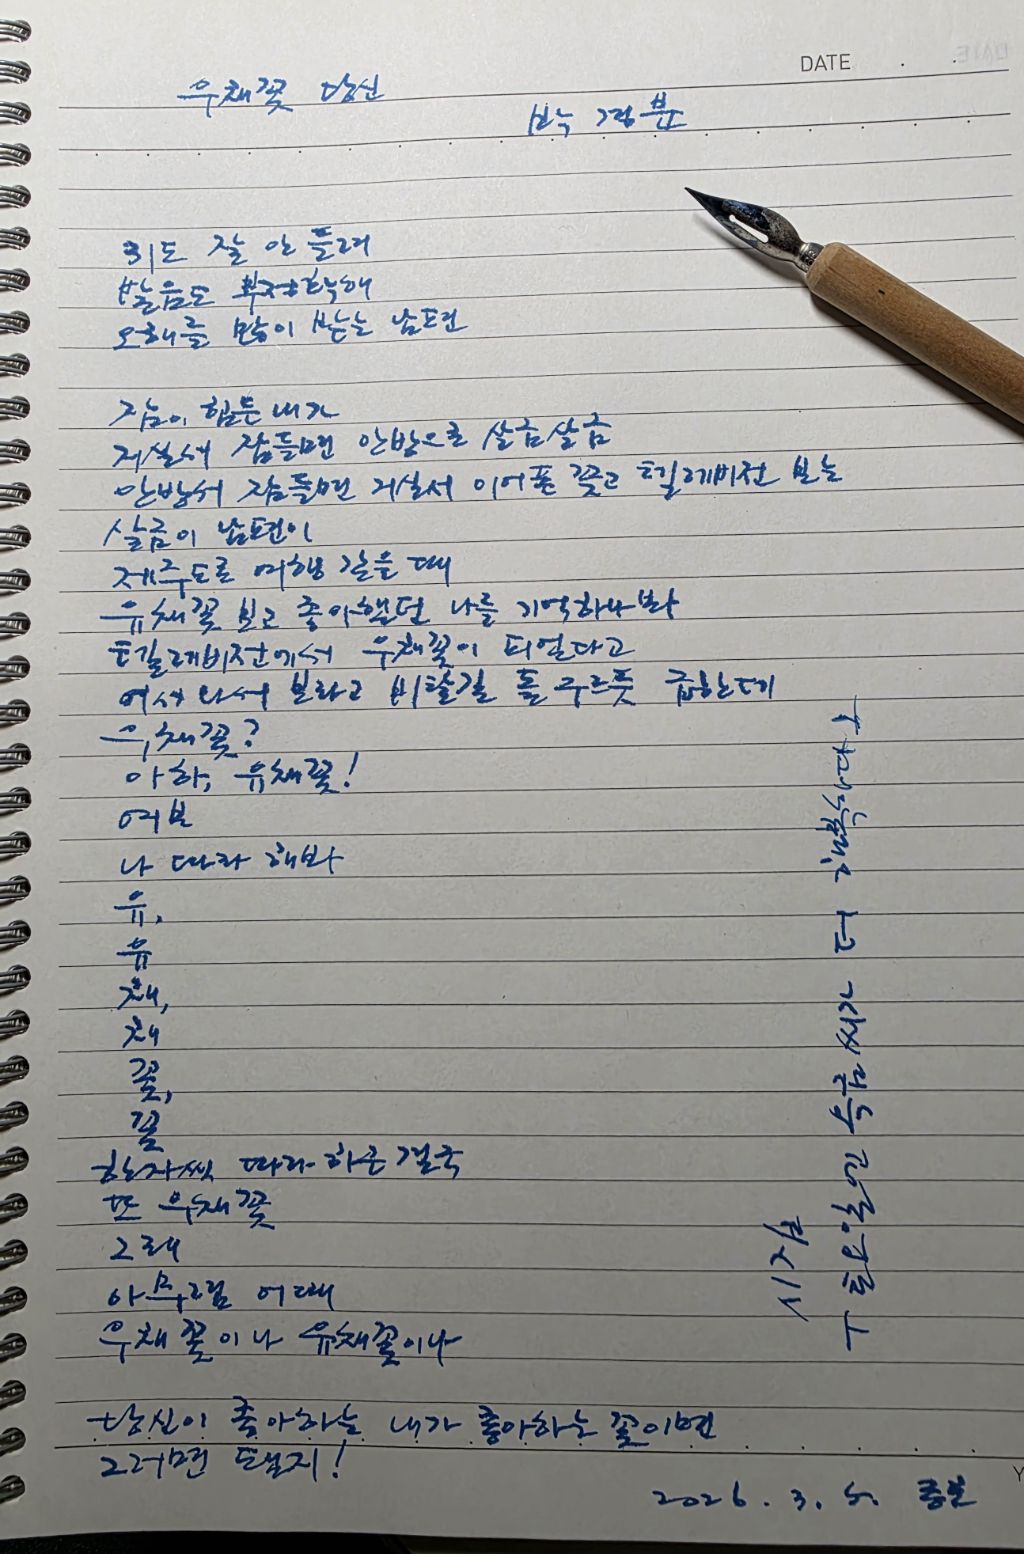 DATE
우채꽃 당신
박경분
귀도 잘 안 들려
발음도 부정확해
오해를 많이 받는 남편
잠이 힘든 내가
거실서 잠들면 안방으로 살금살금
안방서 잠들면 거실서 이어폰 꽂고 텔레비전 보는
살금이 남편이
제주도로 여행 갔을 때
유채꽃 보고 좋아했던 나를 기억하나봐
텔레비전에서 우채꽃이 피었다고
어서 와서 보라고 비탈길 돌 구르듯 급한데
우채꽃?
아하, 유채꽃!
여보
나 따라 해봐
유,
유
채,
채
꽃,
꽃
한자씩 따라하곤 결국
또 우채꽃
그래
아무렴 어때
우채꽃이나 유채꽃이나
당신이 좋아하는 내가 좋아하는 꽃이면
그러면 됐지!
시집
2026. 3. 4.